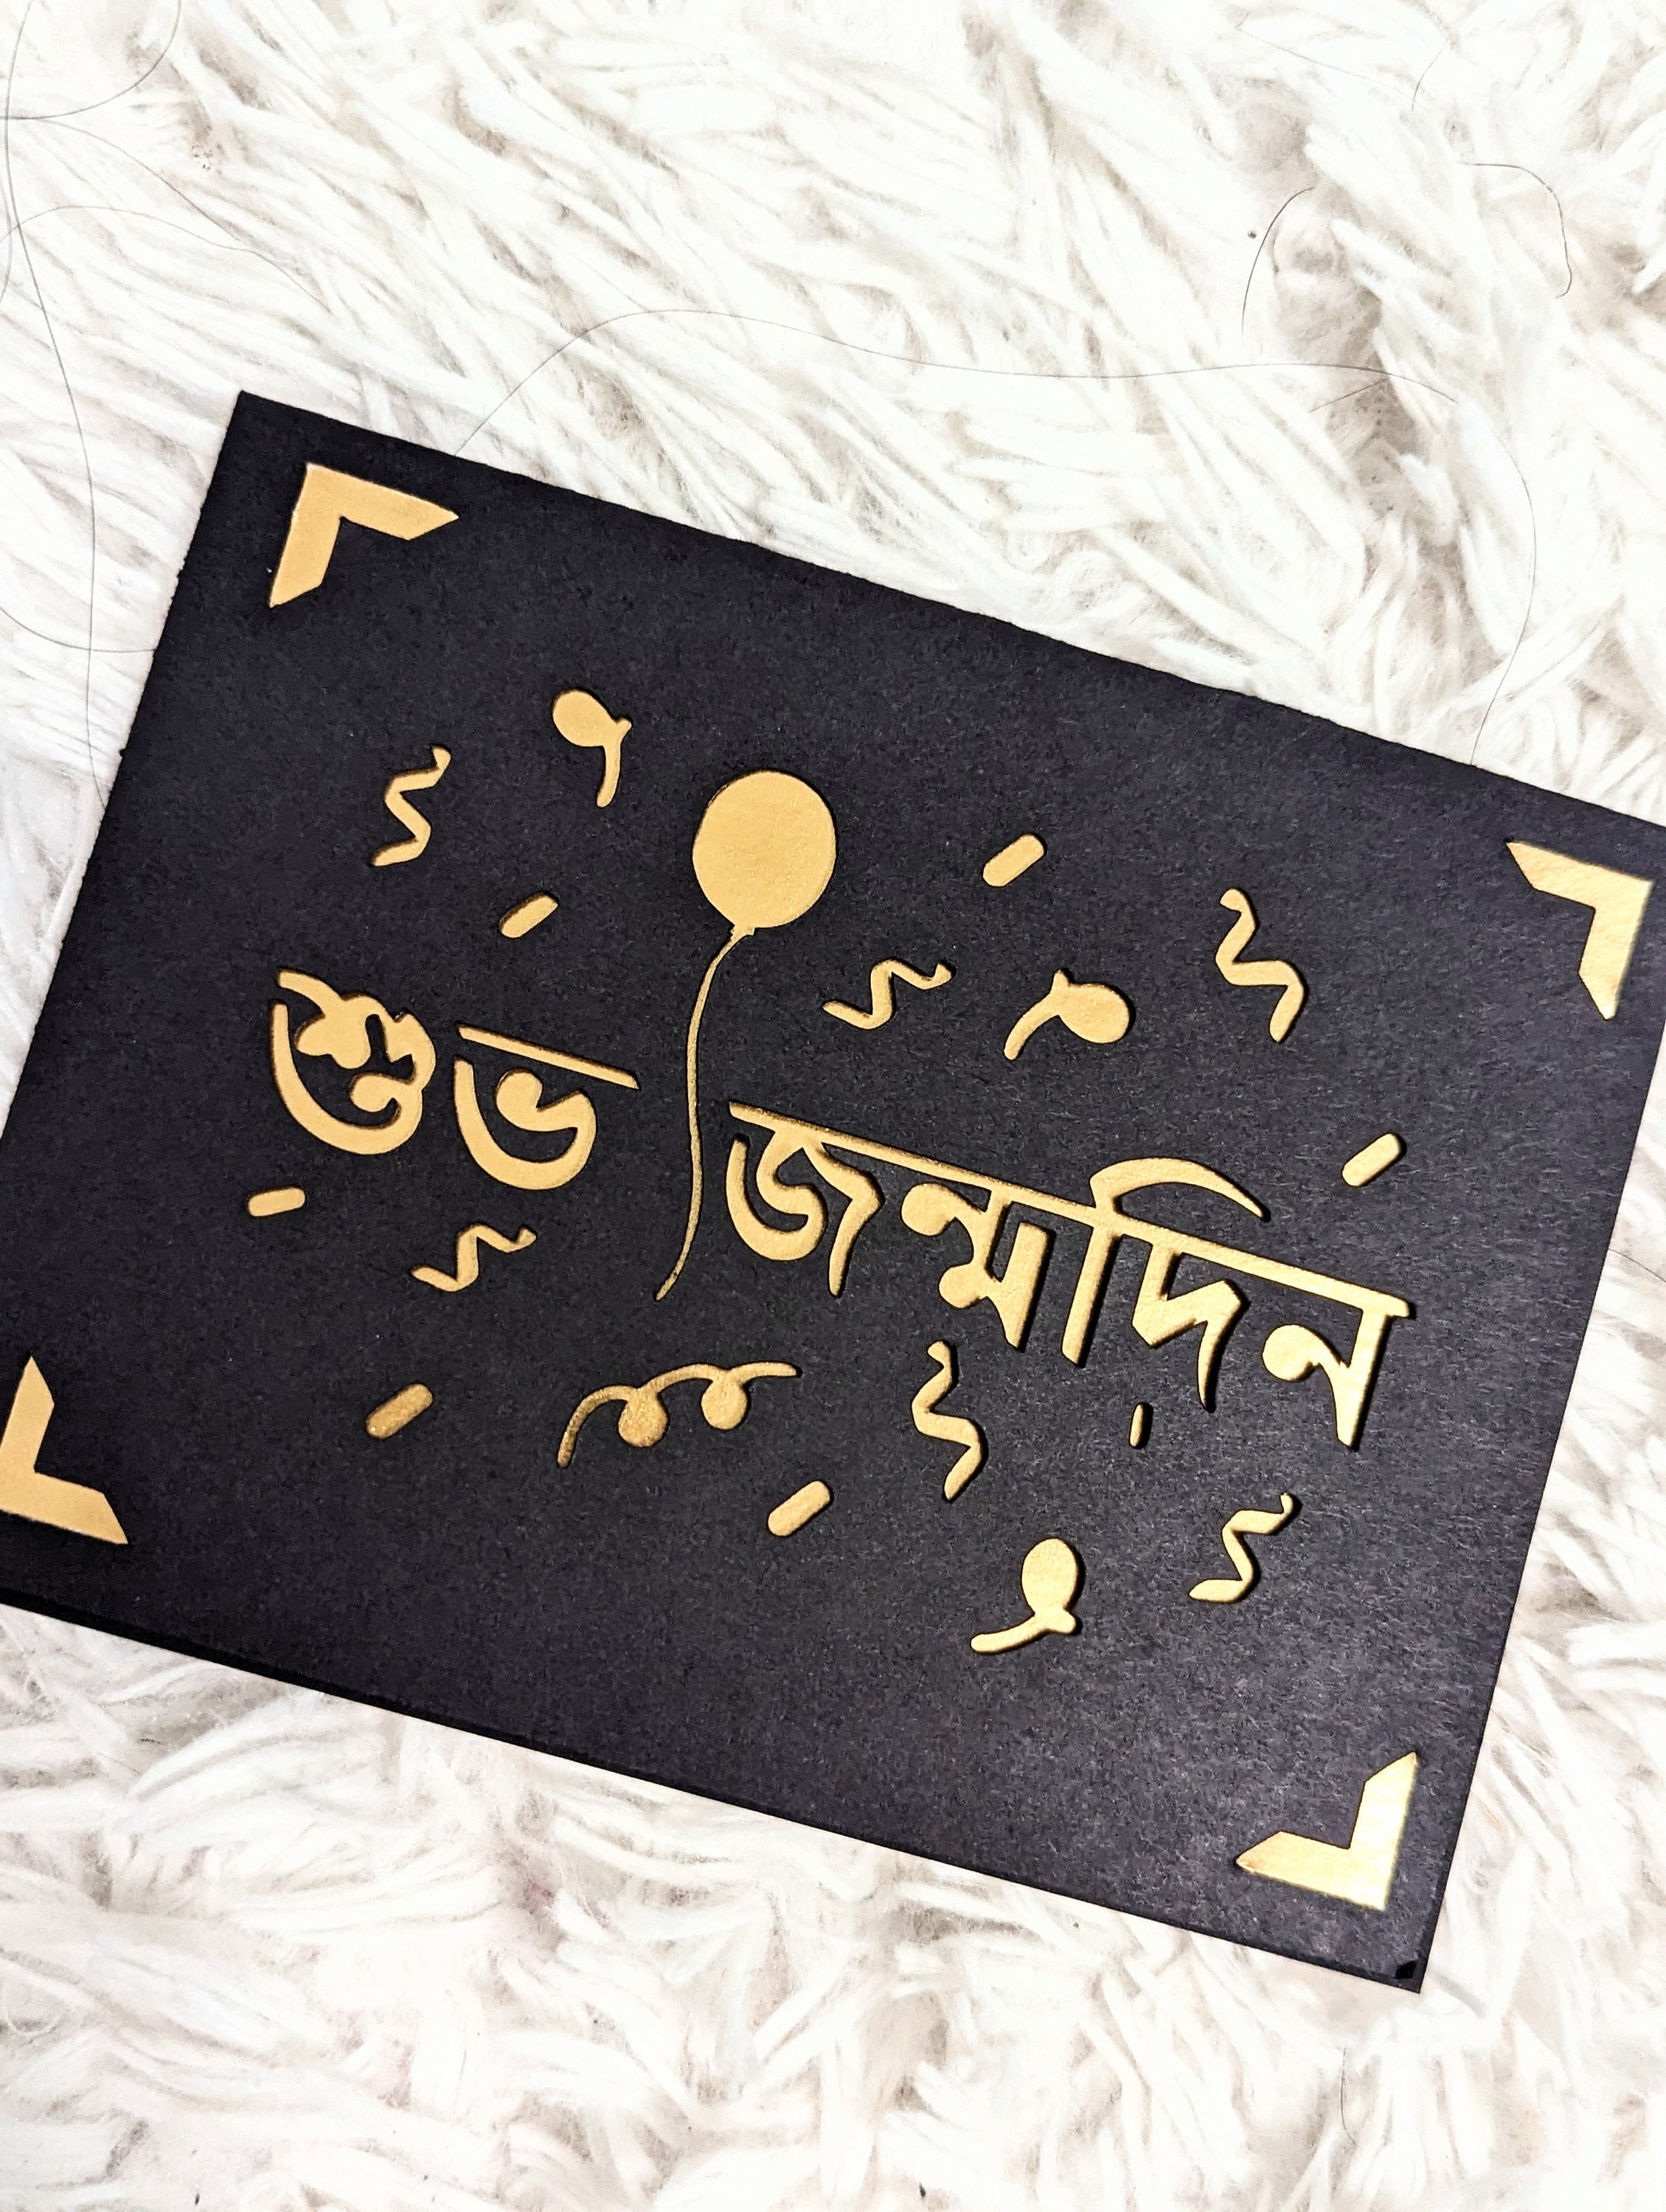 শুভ জন্মদিন